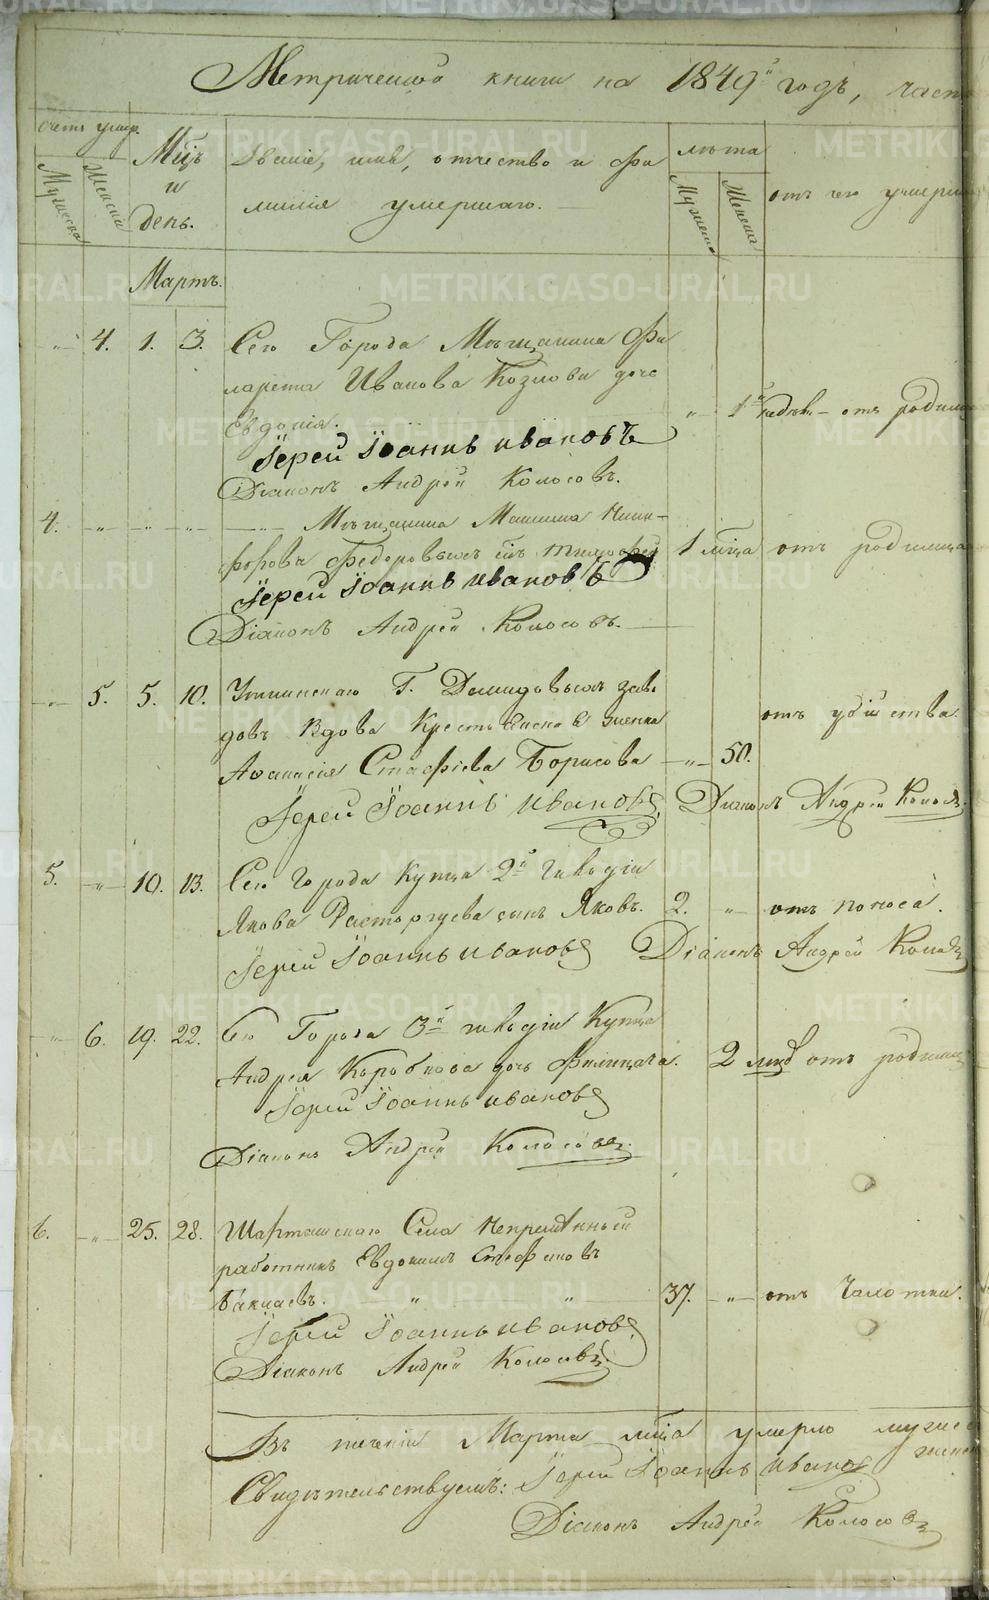 Метрической книги на 1849й годъ, часть
счетъ умер.
Мужеска
Женска
Мцъ и день.
Званіе, имя, отчество и фамилія умершаго.
лѣта
Мужеска
Женска
отъ чего умерли
Мартъ.
" 4. 1. 3. Сего Города Мѣщанина Фи
ларета Иванова Козлова дочь
Евдокія. " 1 недѣл. отъ родимца
Іерей Іоаннъ Ивановъ
Діаконъ Андрей Колосовъ.
4. " " " Мѣщанина Ники-
форова Федоровыхъ сынъ Тимофей 1 мѣца отъ родимца
Іерей Іоаннъ Ивановъ
Діаконъ Андрей Колосовъ.
" 5. 5. 10. Уткинскаго Г. Демидовыхъ заво
довъ Вдова Крестьянская женка
Афанасія Стафіева Борисова " 50. отъ убійства.
Іерей Іоаннъ Ивановъ Діаконъ Андрей Колосовъ.
5. " 10. 13. Сего Города Купца 2й гильдіи
Якова Расторгуева сынъ Яковъ. 2. " отъ поноса.
Іерей Іоаннъ Ивановъ Діаконъ Андрей Колосовъ
" 6. 19. 22. Сего Города 3й гильдіи Купца
Андрея Коробкова дочь Филицата. 2 мцв отъ родимца
Іерей Іоаннъ Ивановъ
Діаконъ Андрей Колосовъ.
6. " 25. 28. Шарташскаго Села Непремѣнный
работникъ Евдокимъ Стефановъ
Бакиевъ. " " 37. " отъ Чахотки.
Іерей Іоаннъ Ивановъ
Діаконъ Андрей Колосовъ.
Въ теченіи Марта мѣца умерло мужес
женс
Свидѣтельствуемъ: Іерей Іоаннъ Ивановъ
Діаконъ Андрей Колосовъ
METRIKI.GASO-URAL.RU